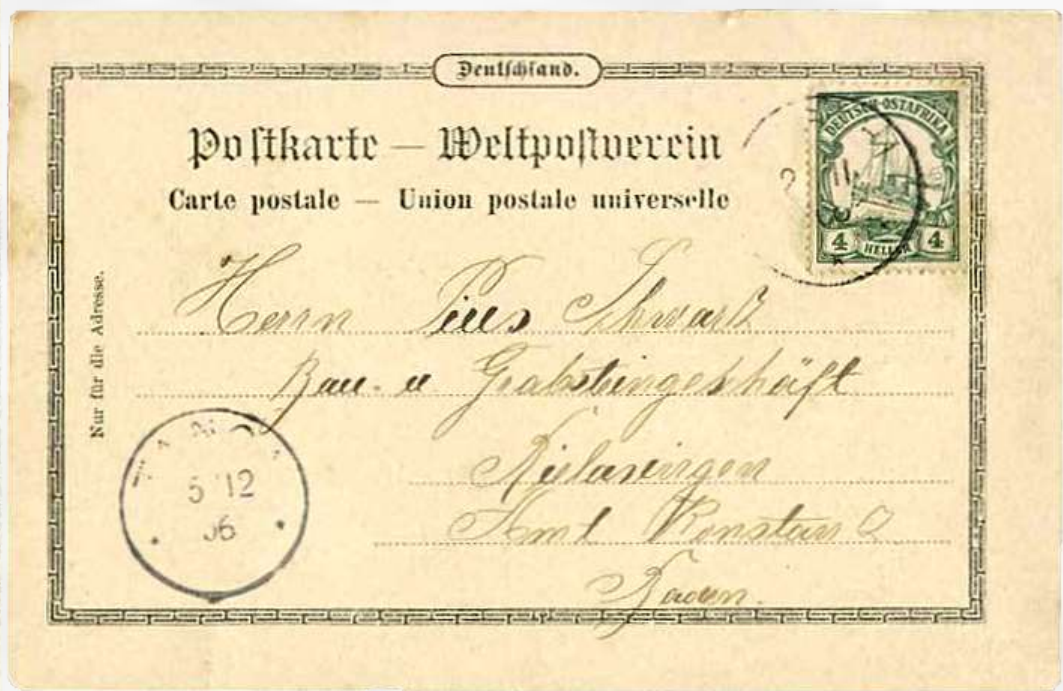 Deutschland.
Postkarte — Weltpostverein
Carte postale — Union postale universelle
DEUTSCH-OSTAFRIKA
4 HELLER 4
Nur für die Adresse.
Herrn Pius Schwarz
Bau- u Grabsteingeschäft
Rielasingen
Amt Konstanz
Baden.
5 12
06